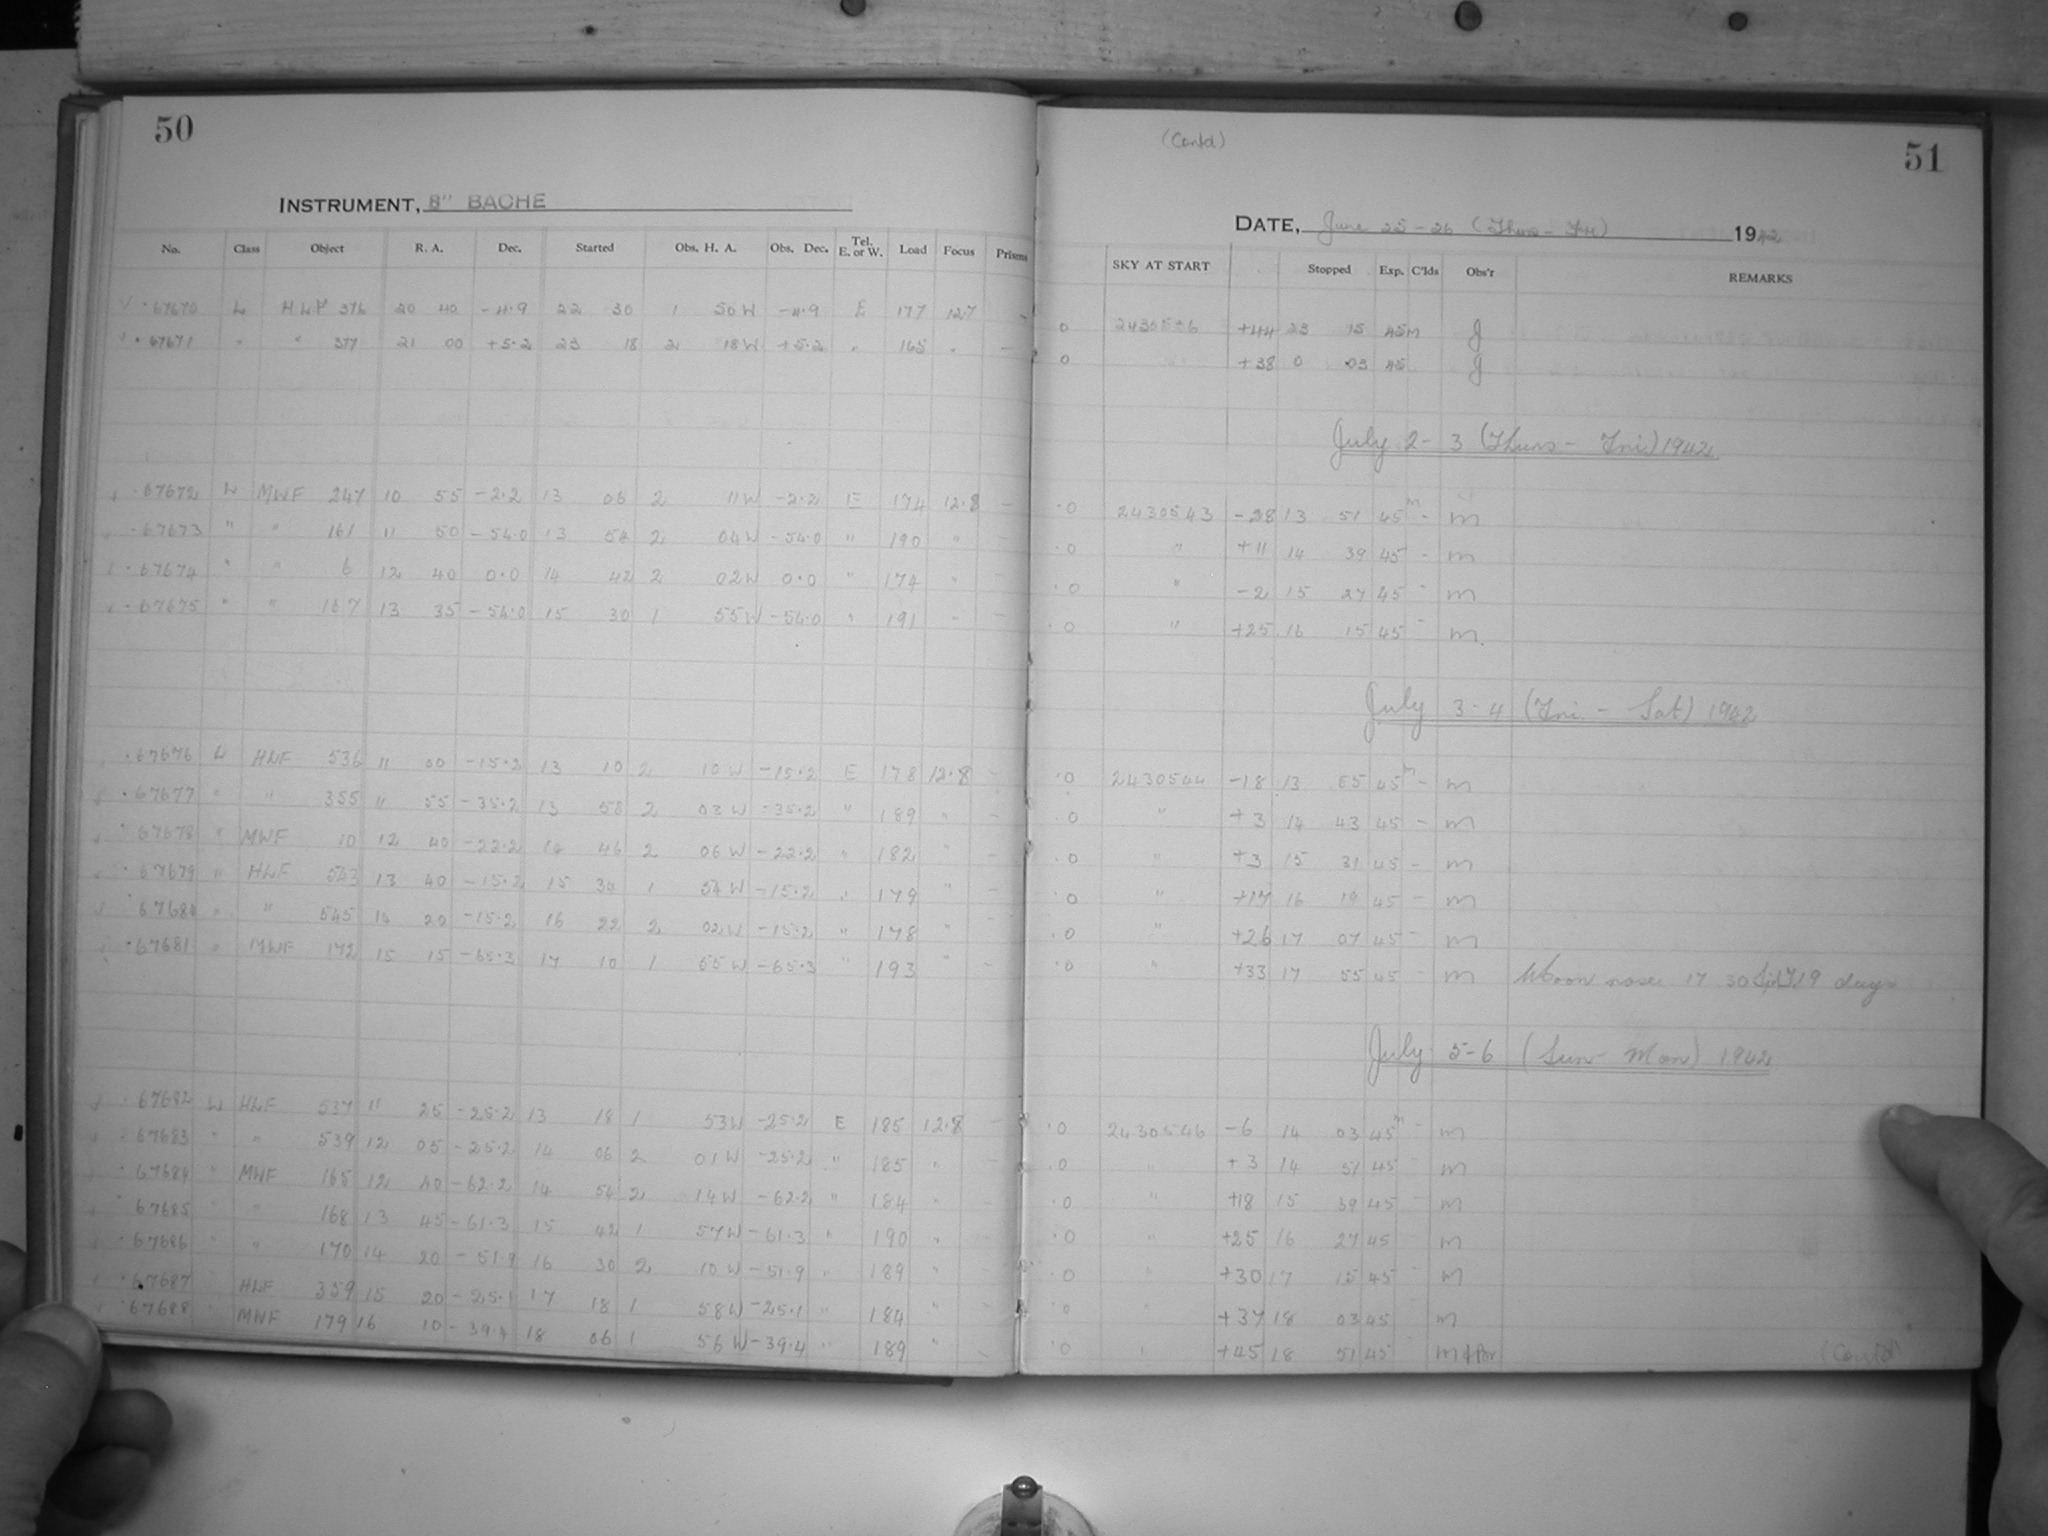 50
INSTRUMENT, 8" BACHE
No. Class Object R. A. Dec. Started Obs. H. A. Obs. Dec. Tel. E. or W. Load Focus Prisms
67670 L HLF 376 20 40 -4.9 22 30 1 50 W -4.9 E 177 12.7 -
67671 " " 377 21 00 +5.2 23 18 2 18 W +5.2 " 165 " -
67672 W MWF 247 10 55 -2.2 13 06 2 11 W -2.2 E 174 12.8 -
67673 " " 161 11 50 -54.0 13 54 2 04 W -54.0 " 190 " -
67674 " " 6 12 40 0.0 14 42 2 02 W 0.0 " 174 " -
67675 " " 167 13 35 -54.0 15 30 1 55 W -54.0 " 191 " -
67676 L HLF 536 11 00 -15.2 13 10 2 10 W -15.2 E 178 12.8 -
67677 " " 355 11 55 -35.2 13 58 2 03 W -35.2 " 189 " -
67678 " MWF 10 12 40 -22.2 14 46 2 06 W -22.2 " 182 " -
67679 " HLF 543 13 40 -15.2 15 34 1 54 W -15.2 " 179 " -
67680 " " 545 14 20 -15.2 16 22 2 02 W -15.2 " 178 " -
67681 " MWF 172 15 15 -65.3 17 10 1 55 W -65.3 " 193 " -
67682 W HLF 537 11 25 -25.2 13 18 1 53 W -25.2 E 185 12.8 -
67683 " " 539 12 05 -25.2 14 06 2 01 W -25.2 " 185 " -
67684 " MWF 165 12 40 -62.2 14 54 2 14 W -62.2 " 184 " -
67685 " " 168 13 45 -61.3 15 42 1 57 W -61.3 " 190 " -
67686 " " 170 14 20 -51.9 16 30 2 10 W -51.9 " 189 " -
67687 " HLF 359 15 20 -25.1 17 18 1 58 W -25.1 " 184 " -
67688 " MWF 179 16 10 -39.4 18 06 1 56 W -39.4 " 189 " -
(Contd)
51
DATE, June 25-26 (Thurs - Fri) 1942
SKY AT START Stopped Exp. C'lds Obs'r REMARKS
0 2430536 +44 23 15 45m J
0 " +38 0 03 45 J
July 2-3 (Thurs - Fri) 1942
0 2430543 -28 13 51 45m - m
0 " +11 14 39 45 - m
0 " -2 15 27 45 - m
0 " +25 16 15 45 - m
July 3-4 (Fri. - Sat) 1942
0 2430544 -18 13 55 45m - m
0 " +3 14 43 45 - m
0 " +3 15 31 45 - m
0 " +17 16 19 45 - m
0 " +26 17 07 45 - m
0 " +33 17 55 45 - m Moon rose 17 30 19 days
July 5-6 (Sun - Mon) 1942
0 2430546 -6 14 03 45m - m
0 " +3 14 51 45 - m
0 " +18 15 39 45 - m
0 " +25 16 27 45 m
0 " +30 17 15 45 - m
0 " +37 18 03 45 m
0 " +45 18 51 45 m
(Cont'd)